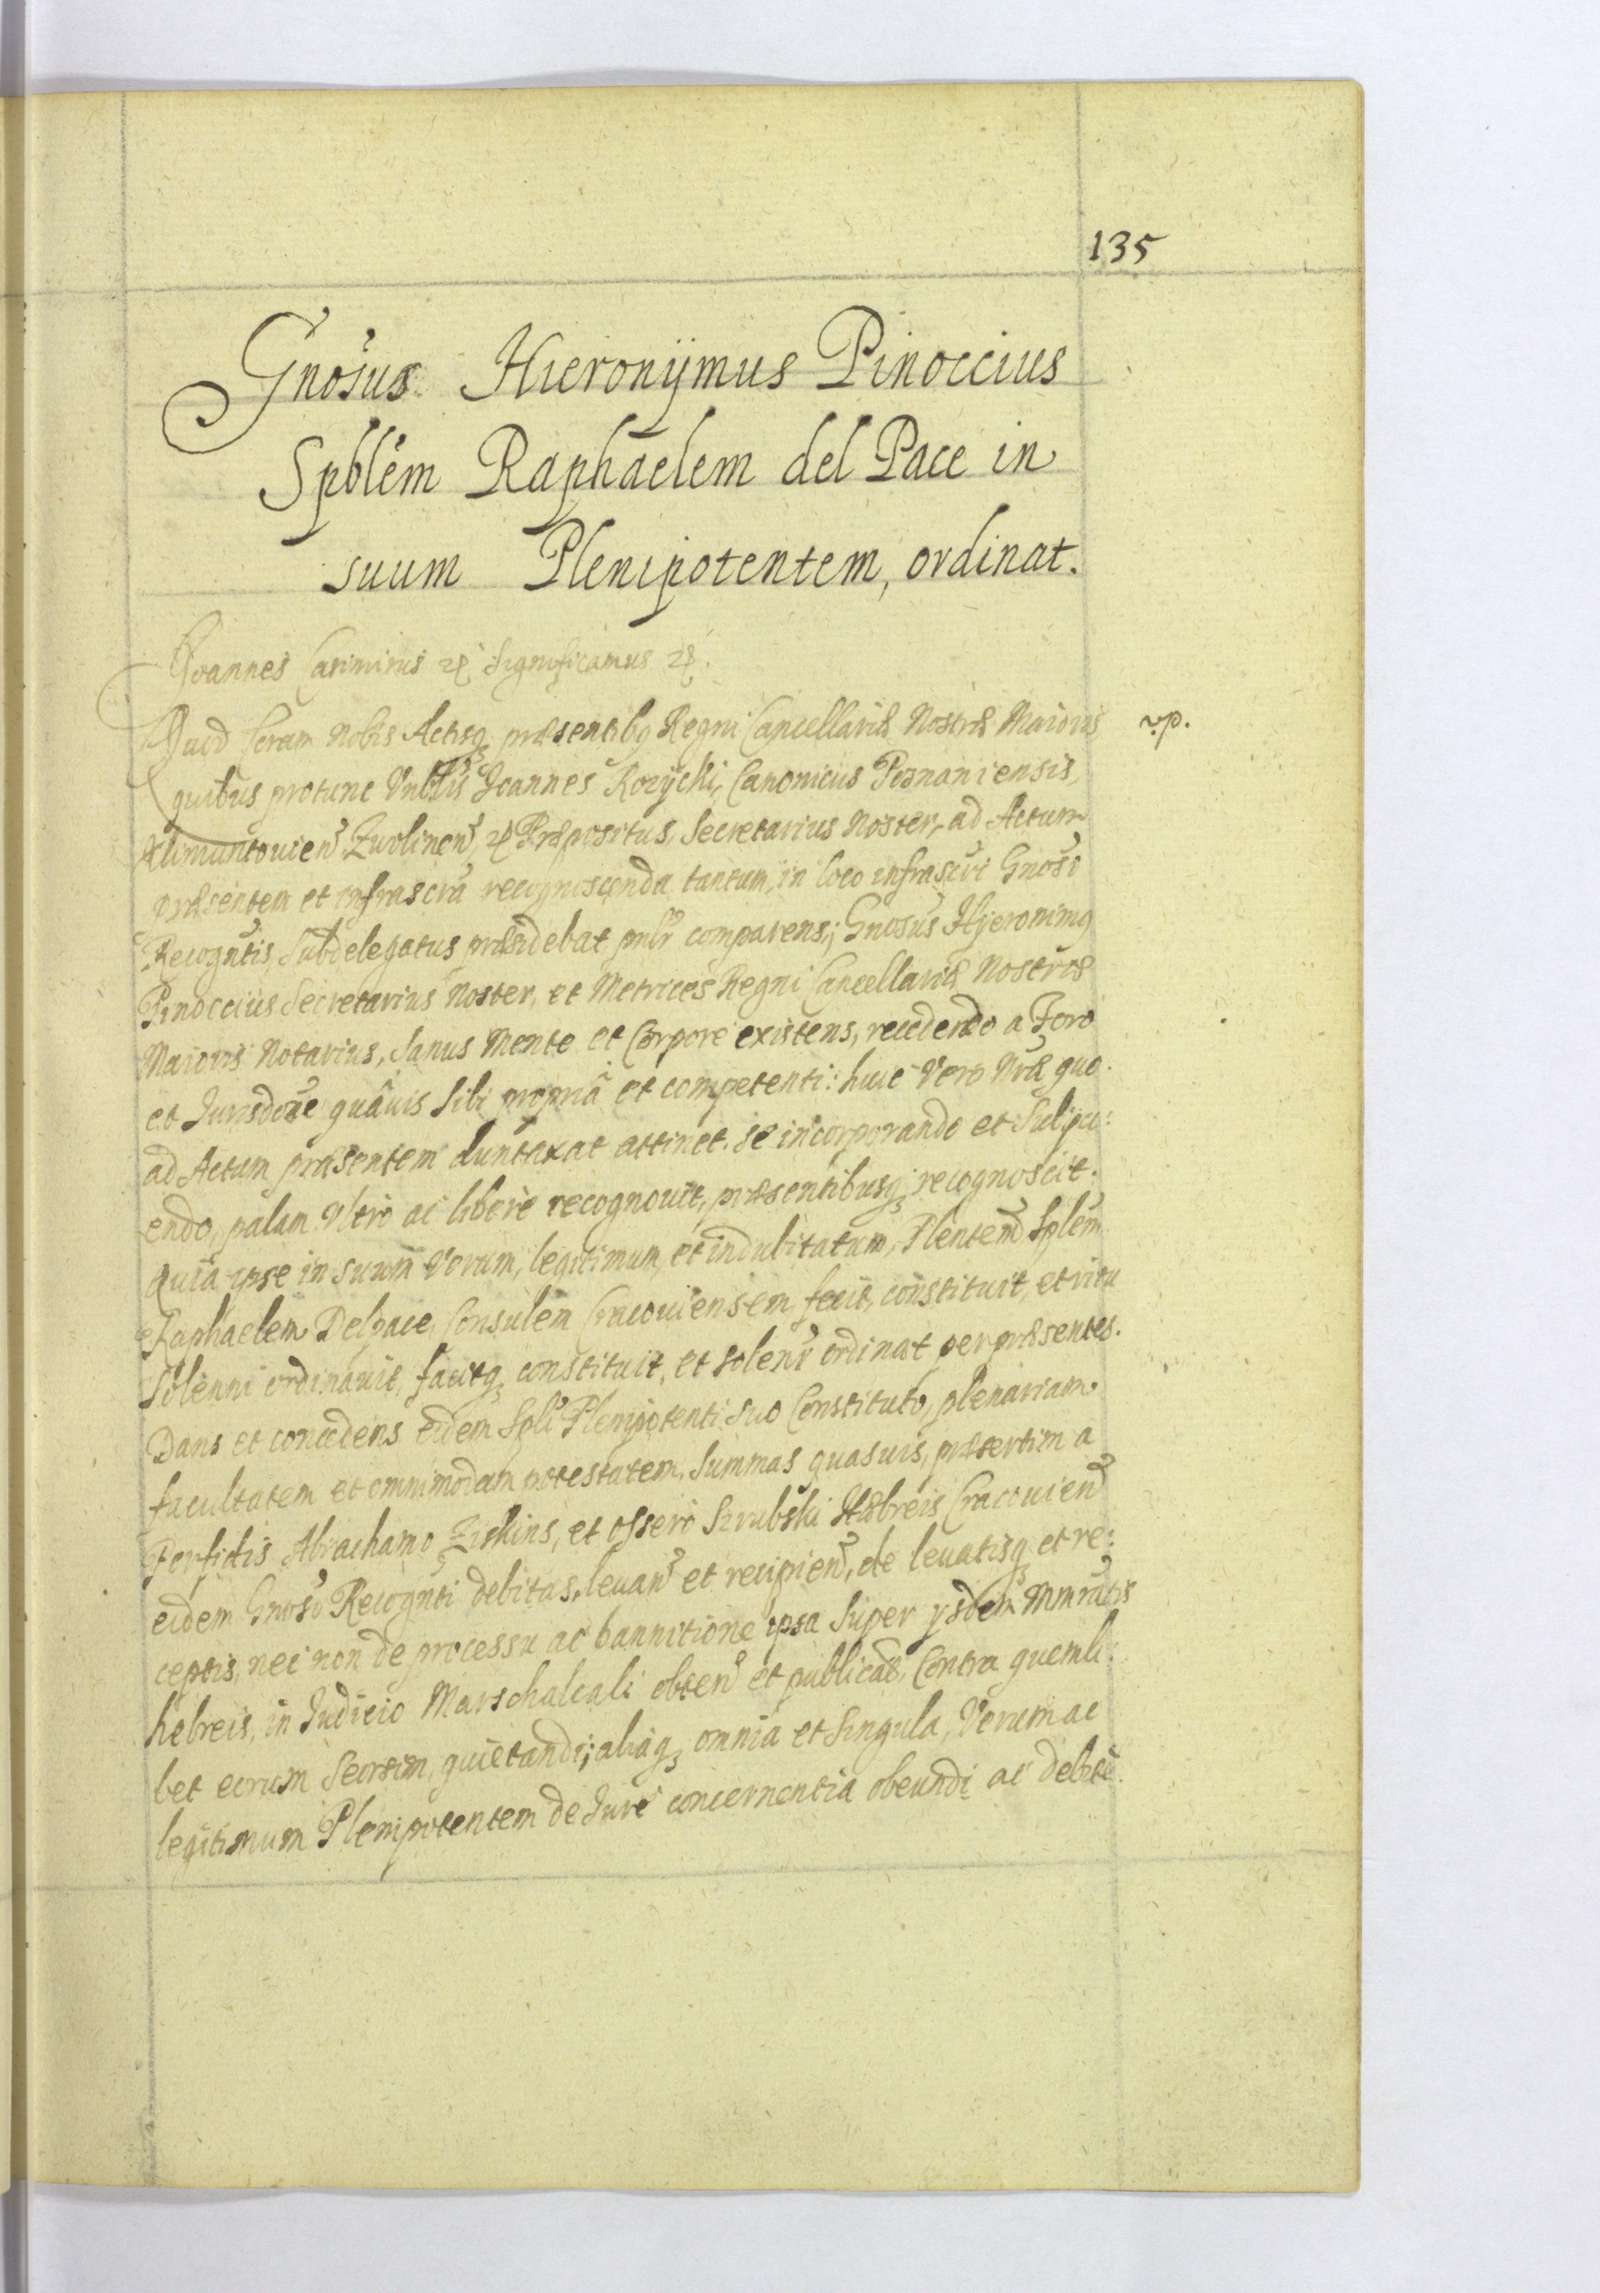 135
Gnosus Hieronÿmus Pinoccius
Spblem Raphaelem del Pace in
suum Plenipotentem, ordinat.
Joannes Casimirus Significamus
Quod Coram Nobis Actisq præsentibq Regni Cancellariæ Nostræ Maioris
v.p.
quibus protunc Joannes Rozÿcki, Canonicus Posnaniensis,
Klimuntouien Zwolinen, Præpositus, Secretarius Noster, ad Actum
præsentem et infrascra recognoscenda tantum, in loco infrascri Gnosi
Recogntis, Subdelegatus præsidebat comparens; Gnosus Hyeronimq
Pinoccius Secretarius Noster, et Metrices Regni Cancellariæ Nostræ
Maioris Notarius, Sanus Mente et Corpore existens, recedendo a Foro
et Jurisdone quâvis Sibi propriâ et competenti: huic Vero Nræ quo
ad Actum præsentem duntaxat attinet. se incorporando et Subÿci:
endo, palam Vltro ac libere recognouit, præsentibusq recognoscit.
quia ipse in suum Verum, legitimum, et indubitatum, Plentem Splem
Raphaelem Delpace, Consulem Cracouiensem fecit, constituit, et ritu
Solenni ordinauit, facitq constituit, et solenr ordinat per præsentes.
Dans et concedens eidem Spli Plenipotenti suo Constituto, plenariam
facultatem et omnimodam potestatem, Summas quasuis, præsertim a
Perfidis Abrachamo Ziskins, et Ossero Szrubski Hæbreis Cracouien
eidem Gnoso Recognti debitas, leuan et recipien, de leuatisq et re:
ceptis, nec non de processu ac bannitione ipsa Super ysdem
hebreis, in Judicio Marschalcali obten et publicad, Contra quemli:
bet eorum Seorsim, quietandi; aliaq omnia et Singula, Verum ac
legitimum Plenipotentem de Jure concernentia obeundi ac debite